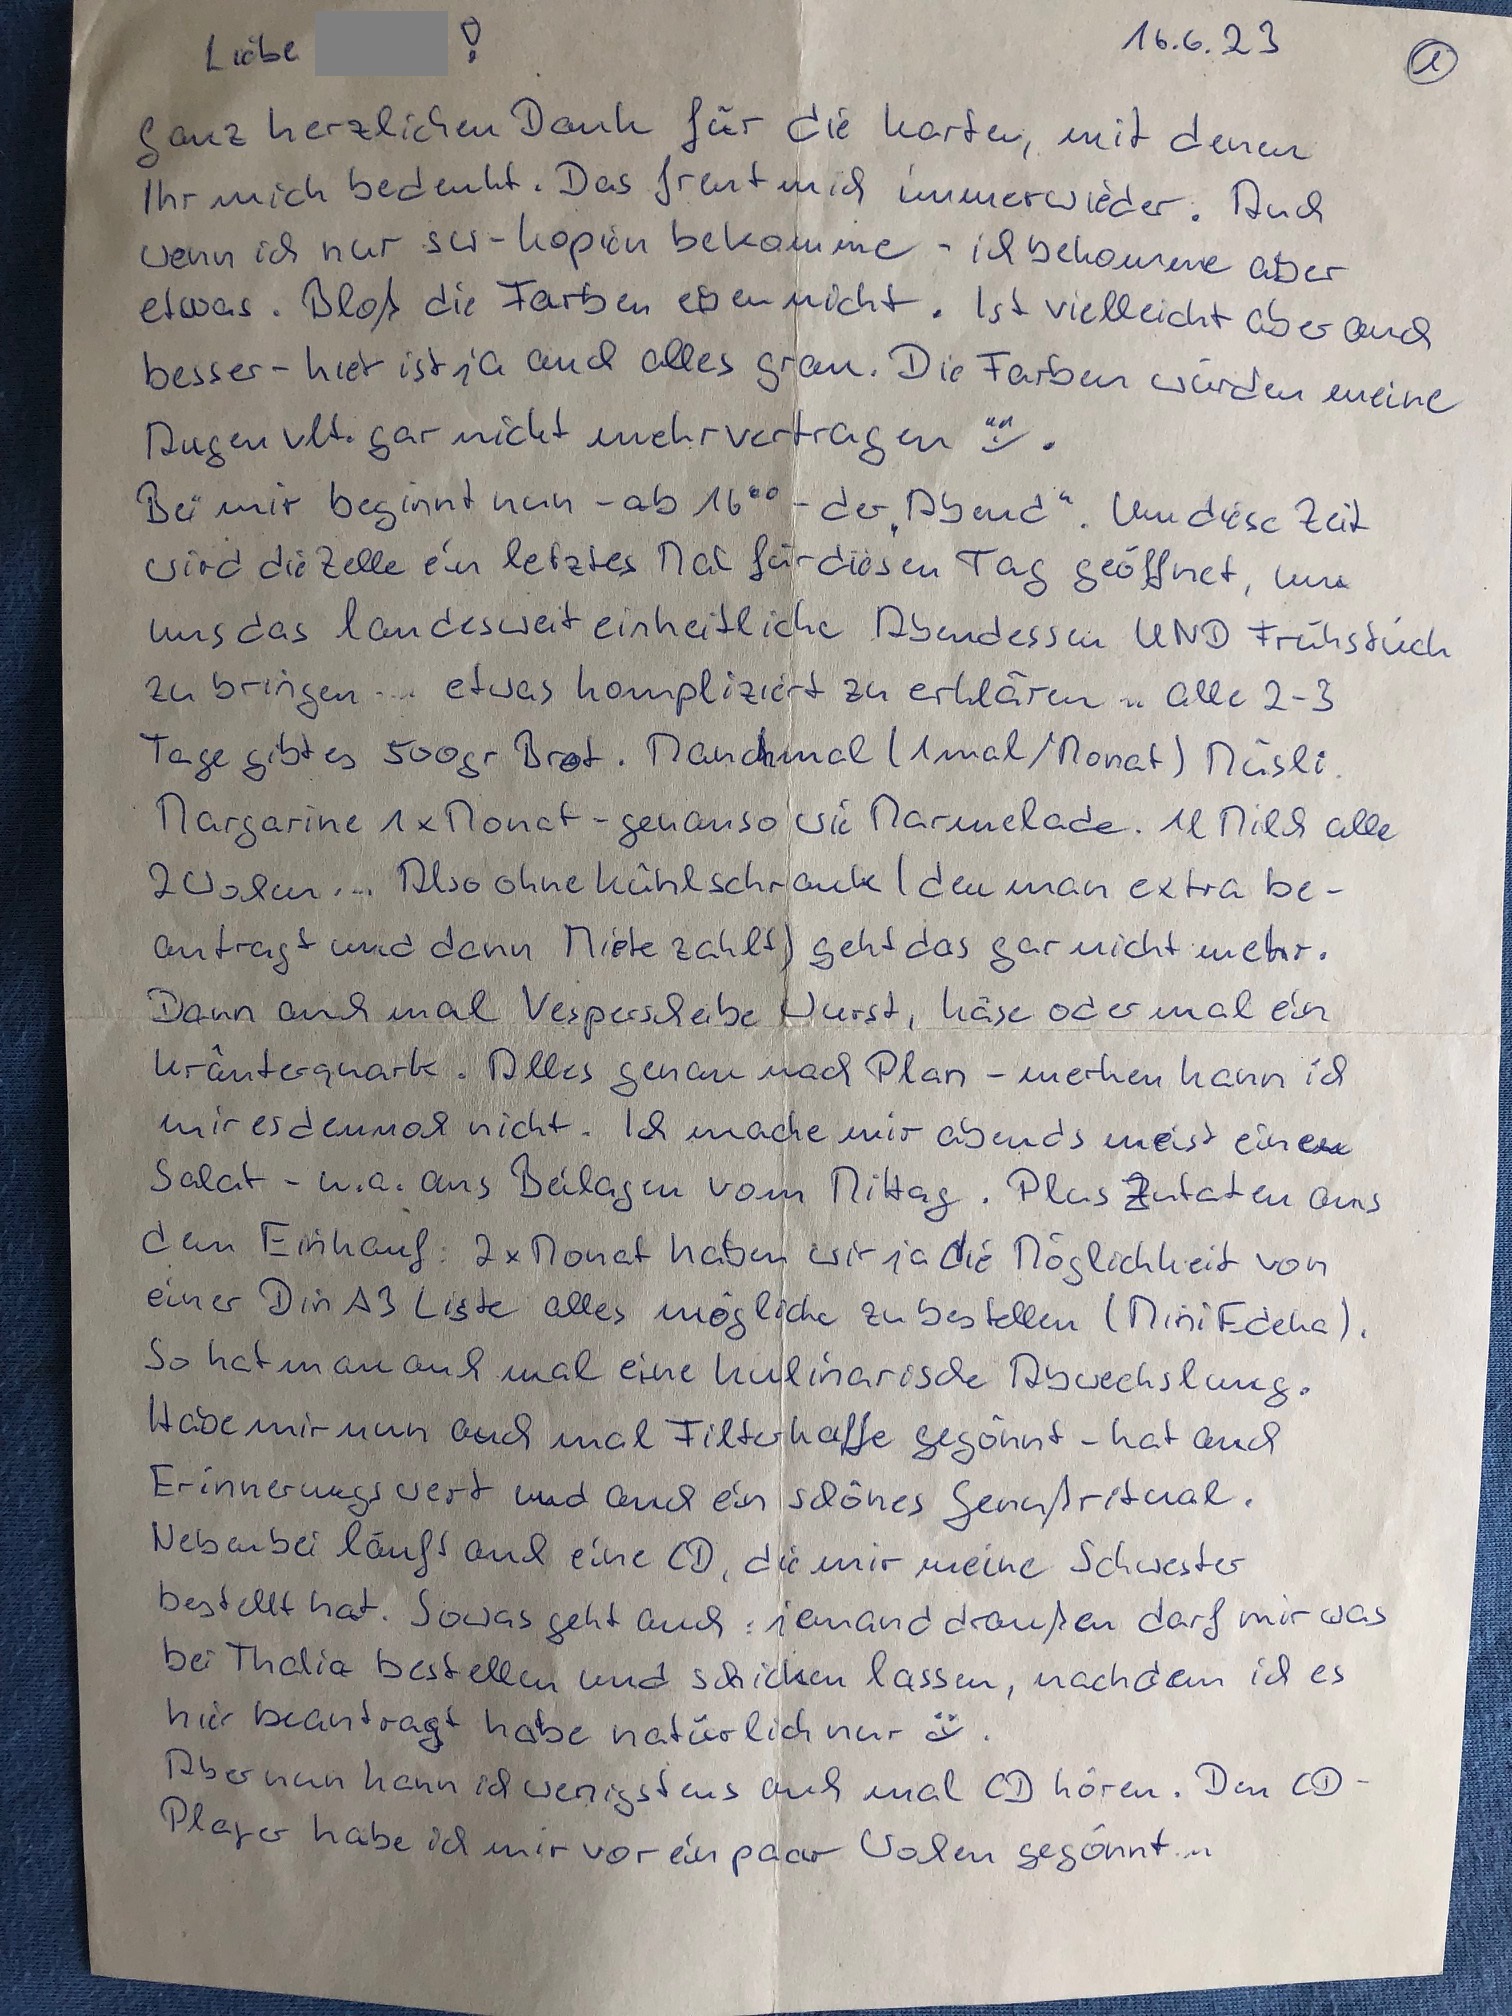 Liebe !
16.6.23
1
Ganz herzlichen Dank für die Karten, mit denen
Ihr mich bedenkt. Das freut mich immer wieder. Auch
wenn ich nur sw-Kopien bekomme - ich bekomme aber
etwas. Bloß die Farben eben nicht. Ist vielleicht aber auch
besser - hier ist ja auch alles grau. Die Farben würden meine
Augen vlt. gar nicht mehr vertragen ü.
Bei mir beginnt nun - ab 16⁰⁰ - der „Abend“. Um diese Zeit
wird die Zelle ein letztes Mal für diesen Tag geöffnet, um
uns das landesweit einheitliche Abendessen UND Frühstück
zu bringen ... etwas kompliziert zu erklären .. alle 2-3
Tage gibt es 500gr Brot. Manchmal (1mal/Monat) Müsli.
Margarine 1x Monat - genauso wie Marmelade. 1l Milch alle
2 Wochen ... Also ohne Kühlschrank (den man extra be-
antragt und dann Miete zahlt) geht das gar nicht mehr.
Dann auch mal Vesperscheibe Wurst, Käse oder mal ein
Kräuterquark. Alles genau nach Plan - merken kann ich
mir es dennoch nicht. Ich mache mir abends meist einen
Salat - u.a. aus Beilagen vom Mittag. Plus Zutaten aus
dem Einkauf: 2x Monat haben wir ja die Möglichkeit von
einer Din A3 Liste alles mögliche zu bestellen (Mini Edeka).
So hat man auch mal eine kulinarische Abwechslung.
Habe mir nun auch mal Filterkaffe gegönnt - hat auch
Erinnerungswert und auch ein schönes Genußritual.
Nebenbei läuft auch eine CD, die mir meine Schwester
bestellt hat. Sowas geht auch: jemand draußen darf mir was
bei Thalia bestellen und schicken lassen, nachdem ich es
hier beantragt habe natürlich nur ü.
Aber nun kann ich wenigstens auch mal CD hören. Den CD-
Player habe ich mir vor ein paar Wochen gegönnt...